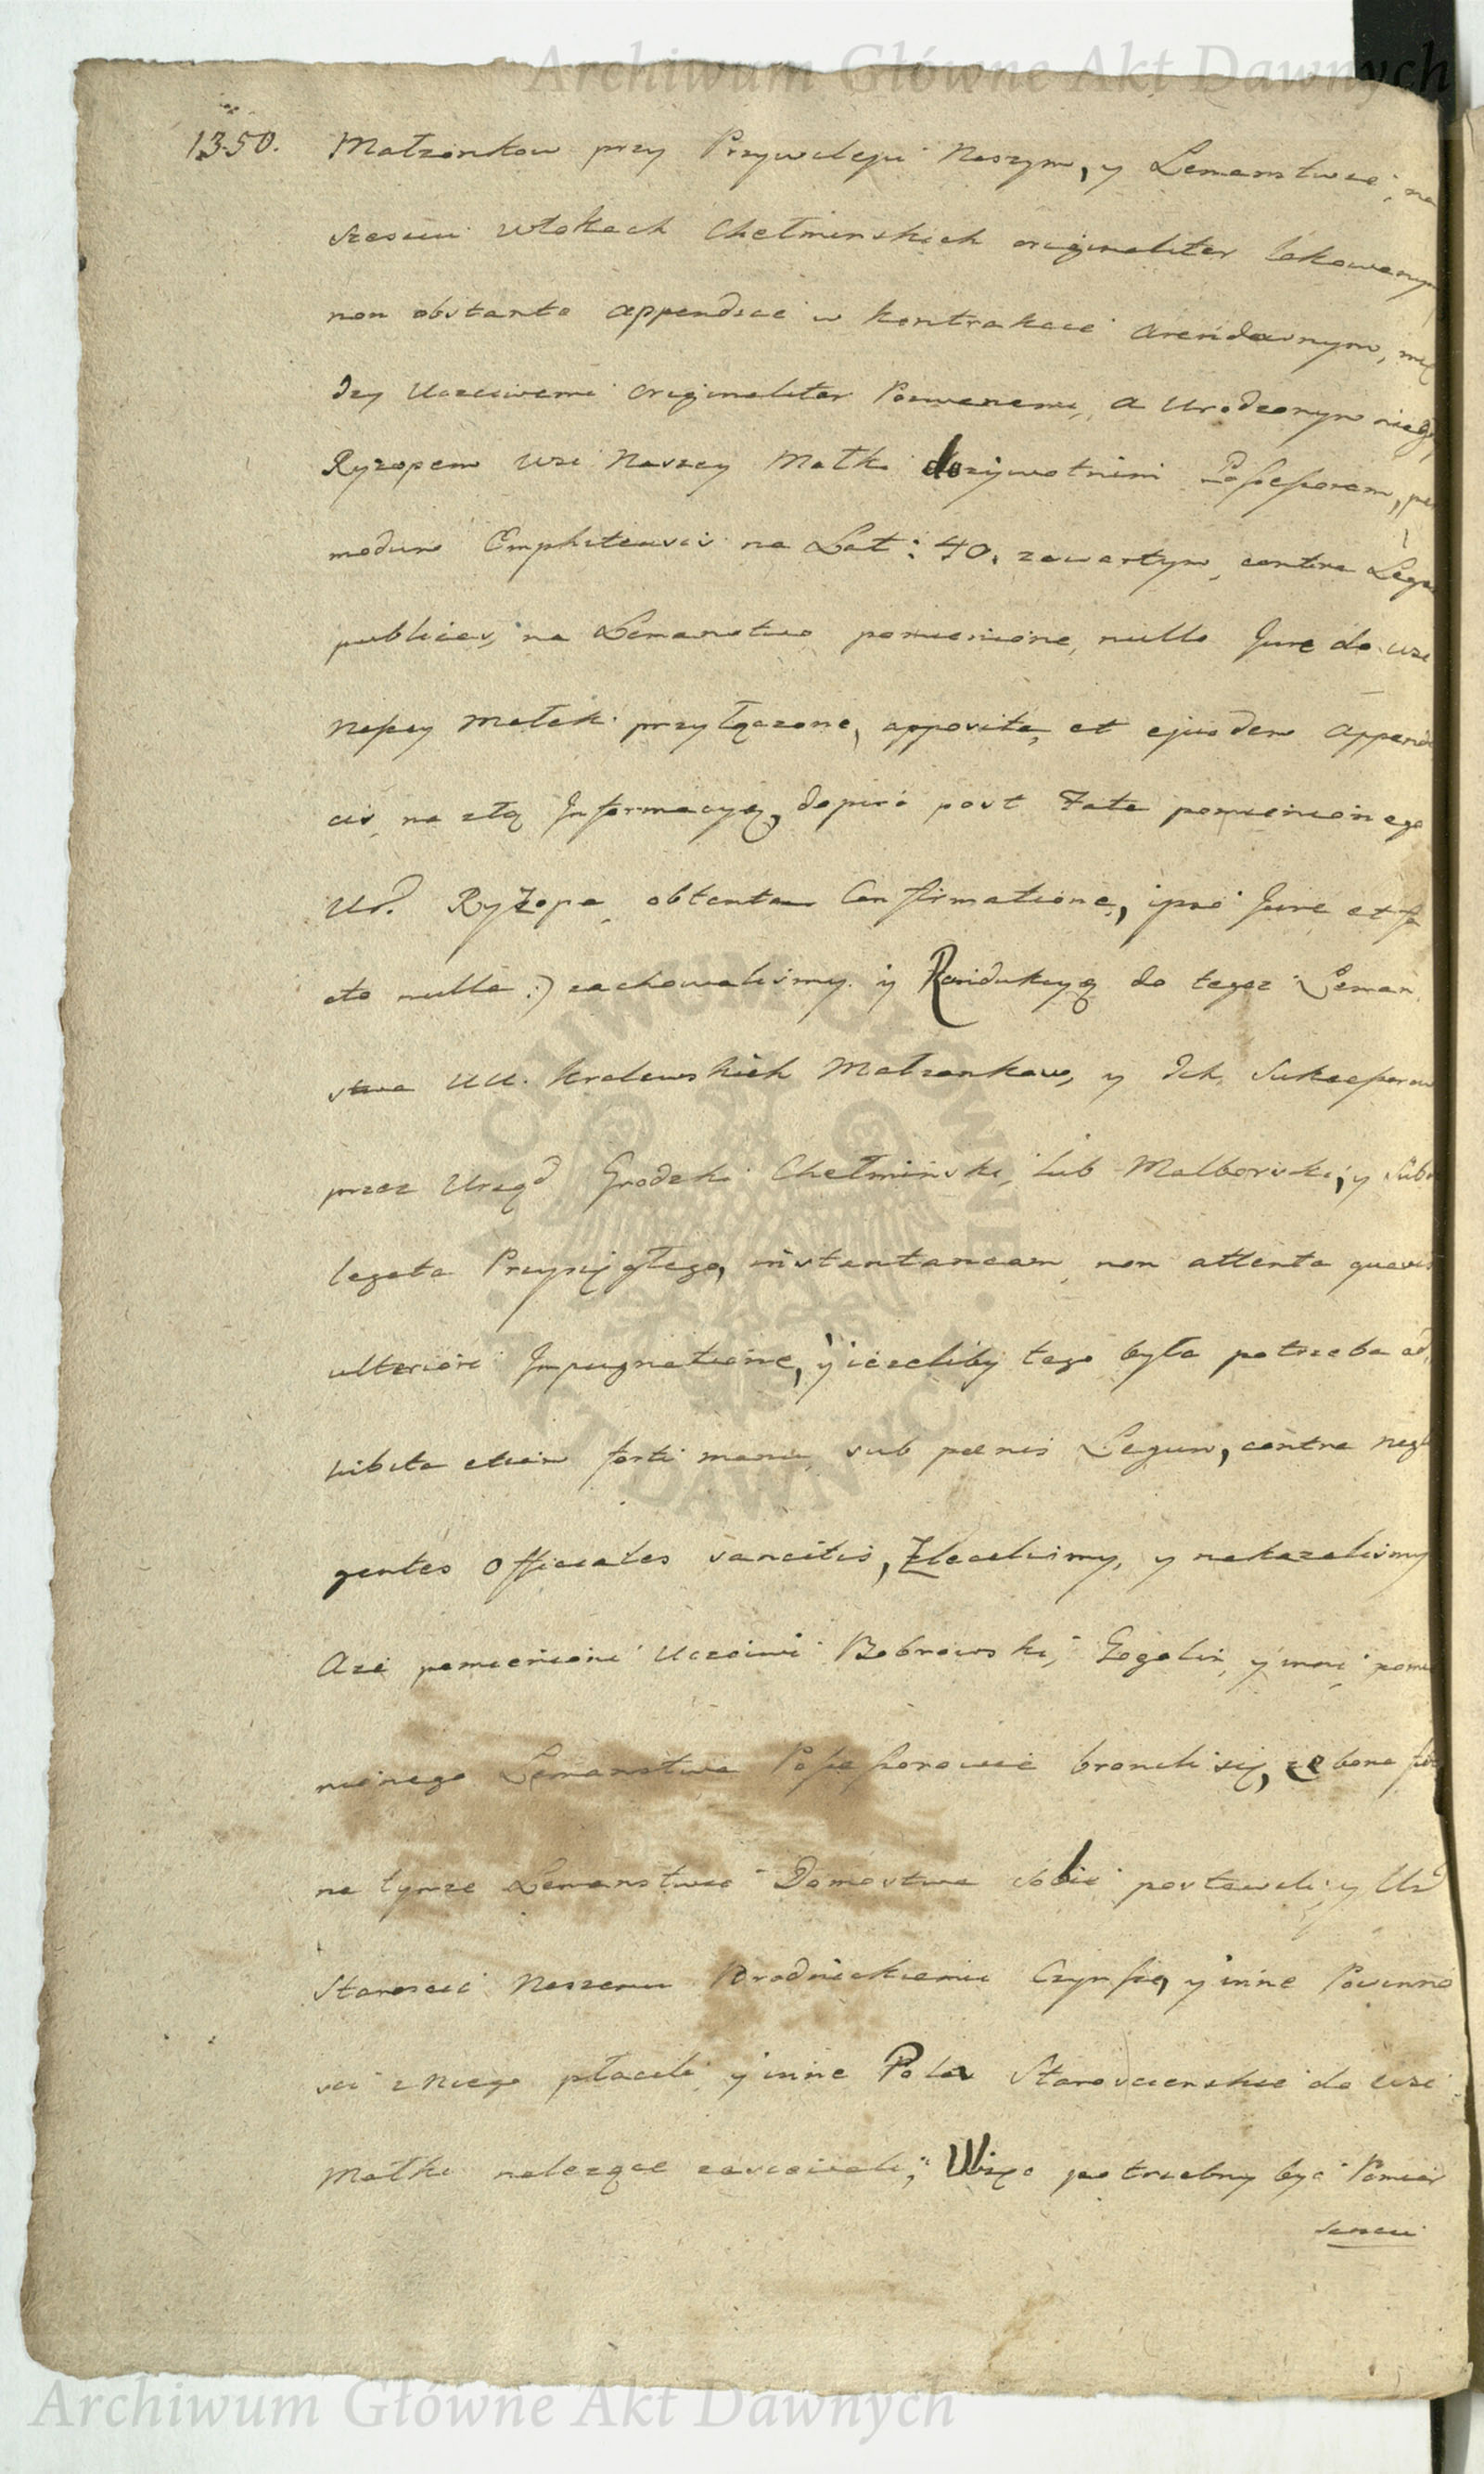 Archiwum Główne Akt Dawnych
1350.
Małzonkow przy Przywileju Naszym, y Lemanstwie, na
szesciu włokach Chełminskich originaliter lokowanym
non obstante appendice w kontrakcie Arendownym, mię
dzy Uczciwemi originaliter Pozwanemi, a Urodzonym niegdy
Ryzopem wsi Naszey Małki dozywotnim Possessorem, per
modum Emphiteusis na Lat: 40. zawartym, contra Leges
publicas, na Lemanstwo pomienione, nullo Jure do wsi
Naszey Małek przyłączone, apposita, et ejusdem Appendi
cis, na złą Informacyą, dopiro post Fata pomienionego
Ur. Ryżopa, obtenta Confirmatione, ipso Jure et fa
cto nulla :) zachowalismy. y Reindukcyą do tegoz Leman
stwa UU. Kralewskich Małzonkow, y Ich Sukcessorow
przez Urząd Grodzki Chełminski, lub Malborski, y Subde
legata Przysięgłego, instantaneam, non attenta quavis
ulteriori Impugnatione, y iezeliby tego była potrzeba ad
hibita etiam forti manu, sub poenis Legum, contra negli
gentes Officiales sancitis, Zlecilismy, y nakazalismy
Aze pomienieni Uczciwi Bobrowski, Gogolin, y inni pomie
nionego Lemanstwa Possessorowie bronili się, ze bona fide
na tymze Lemanstwie Domostwa sobie postawili, y Ur
Staroscie Naszemu Brodnickiemu Czynsze, y inne Powinno
sci z niego płacili, y inne Pola Staroscienskie do wsi
Małki nalezące zasiewali; Więc potrzebny być Pomiar
sensui
Archiwum Główne Akt Dawnych